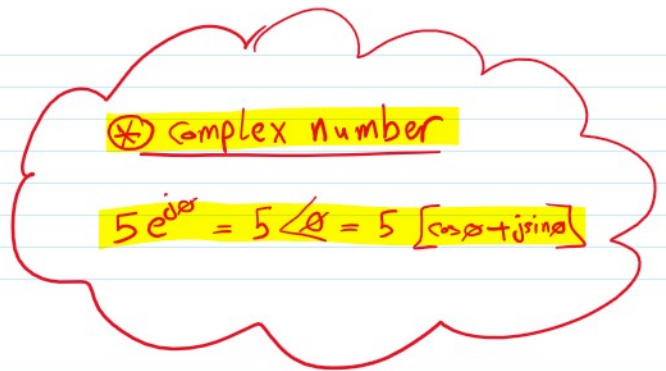 ⊛ complex number
5e^{jø} = 5∠ø = 5 [cosø+jsinø]